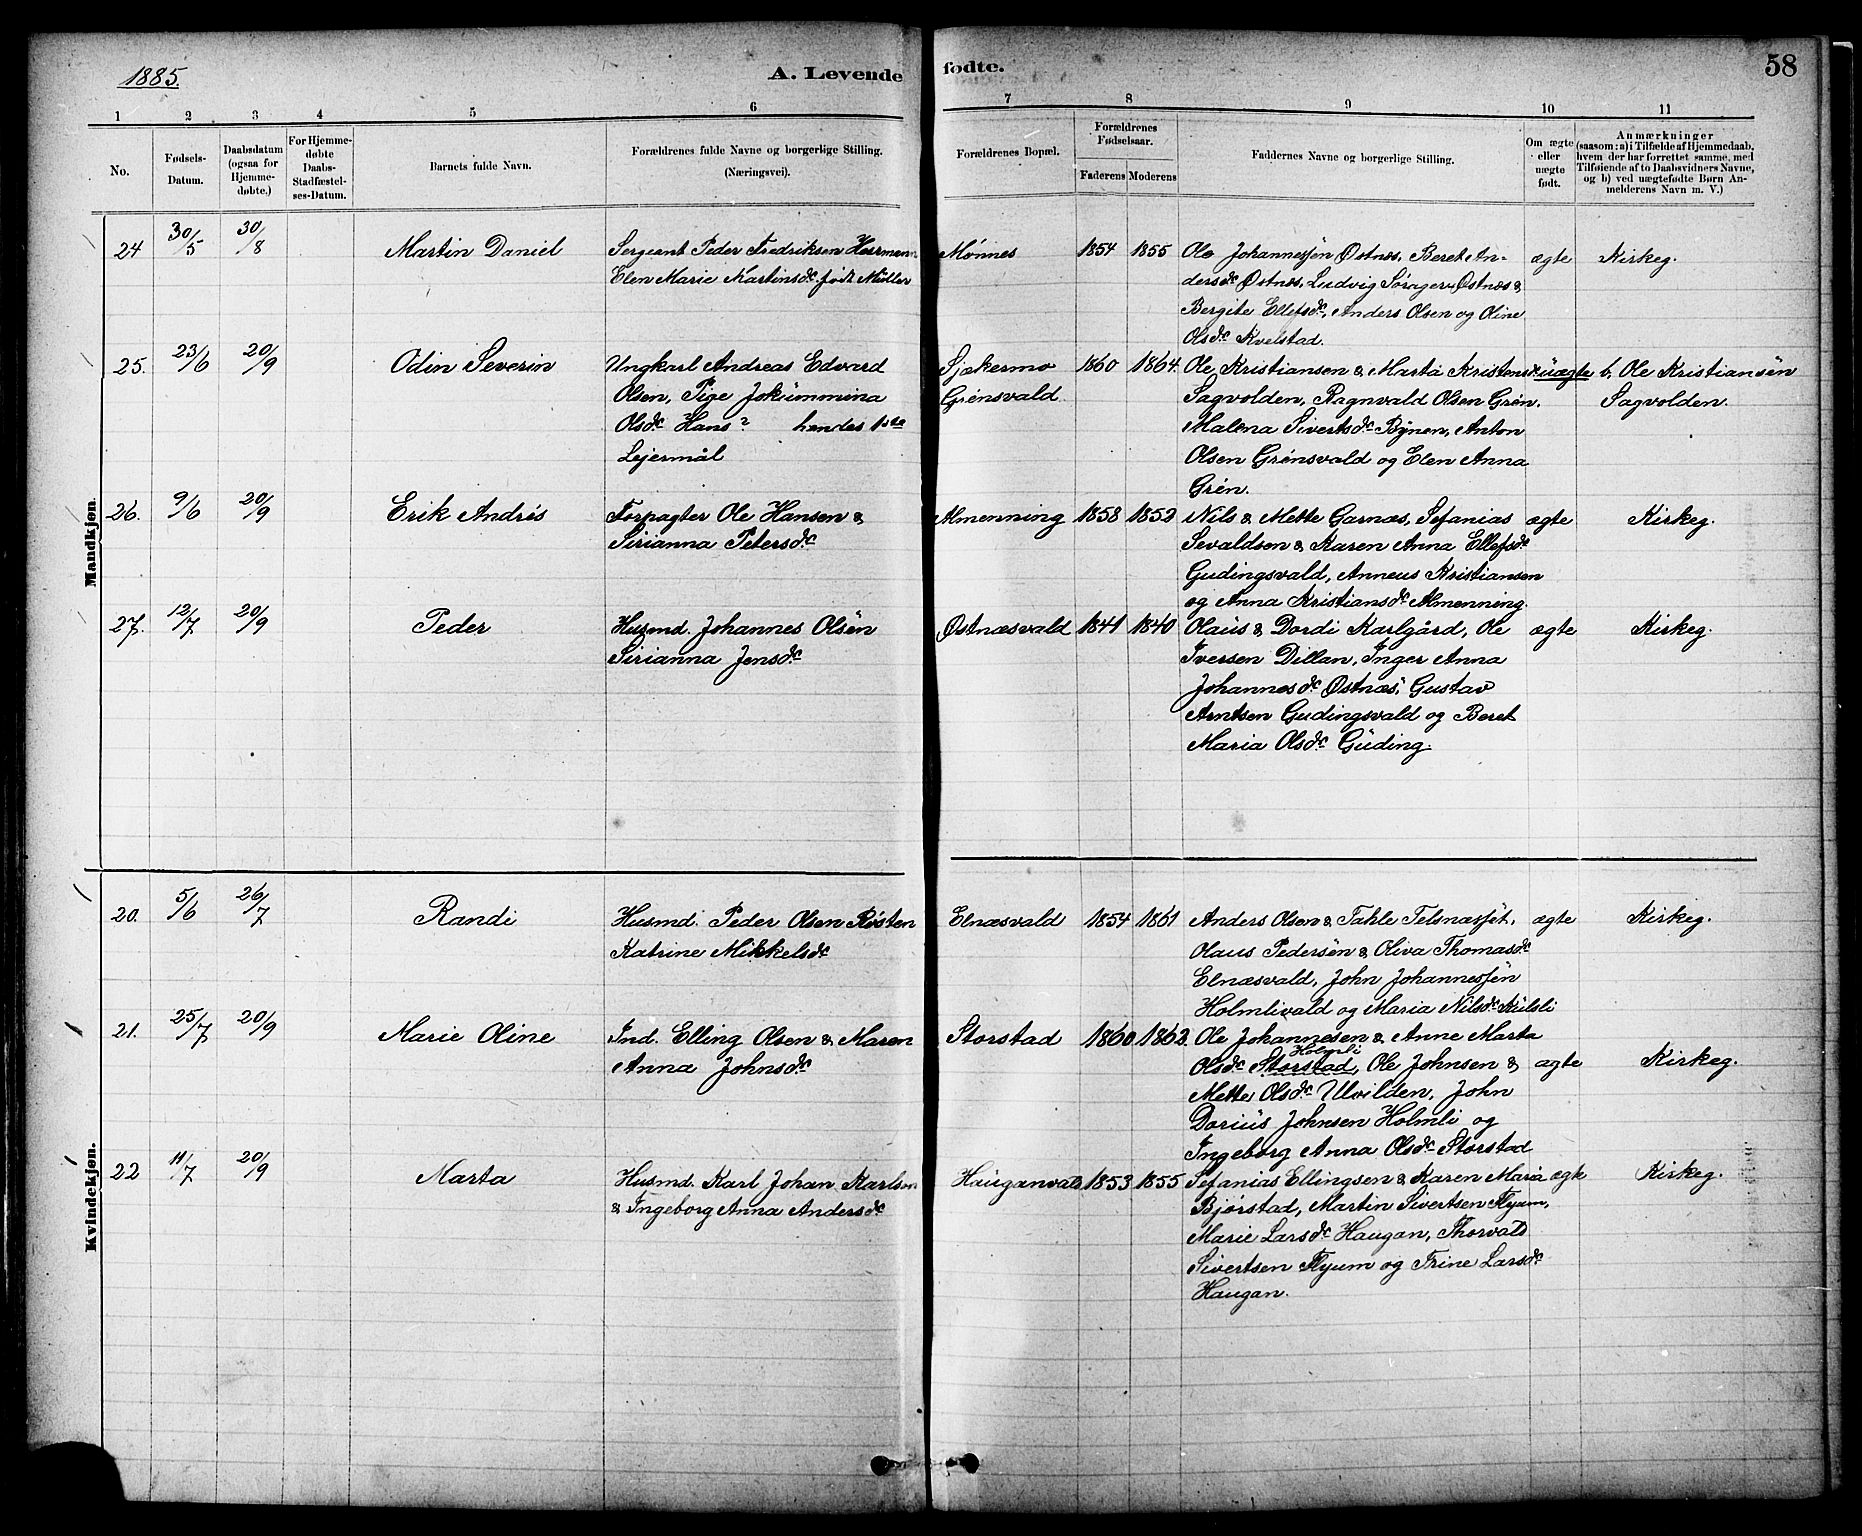 1885.
A. Levende
fødte.
58
1 2 3 4 5 6 7 8 9 10 11
No.
Fødsels-
Datum.
Daabsdatum
(ogsaa for
Hjemme-
døbte.)
For Hjemme-
døbte
Daabs-
Stadfæstel-
ses-Datum.
Barnets fulde Navn.
Forældrenes fulde Navne og borgerlige Stilling.
(Næringsvei).
Forældrenes Bopæl.
Forældrenes
Fødselsaar.
Faderens Moderens
Faddernes Navne og borgerlige Stilling.
Om ægte
eller
uægte
født.
Anmærkninger
(saasom: a) i Tilfælde af Hjemmedaab,
hvem der har forrettet samme, med
Tilføiende af to Daabsvidners Navne,
og b) ved uægtefødte Børn An-
melderens Navn m. V.)
Mandkjøn.
24 30/5 30/8 Martin Daniel
Sergeant Peder Fredriksen Herrmann
Elen Marie Martinsdr født Müller
Mønnes 1854 1855
Ole Johannesen Østnes, Beret An-
dersdr Østnes, Ludvig Sørager Østnæs &
Bergite Ellefsdr, Anders Olsen og Oline
Olsdr Kvelstad.
ægte Kirkeg.
25. 23/6 20/9 Odin Severin
Ungkarl Andreas Edvard
Olsen, Pige Jokummina
Olsdr Hans? hendes 1ste
Lejermål
Sjækermo
Grønsvald.
1860 1864.
Ole Kristiansen & Marta Kristensdr
Sagvolden, Ragnvald Olsen Grøn.
Malena Sivertsdr Bynen, Anton
Olsen Grønsvald og Elen Anna
Grøn.
uægte b, Ole Kristiansen
Sagvolden.
26. 9/6 20/9 Erik Andrés
Forpagter Ole Hansen &
Sirianna Petersdr
Almenning 1858 1852
Nils & Mette Garnæs, Sefanias
Sevaldsen & Karen Anna Ellefsdr
Gudingsvald, Anneus Kristiansen
og Anna Kristiansdr Almenning.
ægte Kirkeg.
27. 12/7 20/9 Peder
Husmd. Johannes Olsen
Sirianna Jensdr
Østnæsvald 1841 1840
Olaus & Dordi Karlgård, Ole
Iversen Dillan, Inger Anna
Johannesdr Østnæs, Gustav
Arntsen Gudingsvald og Beret
Maria Olsdr Guding.
ægte Kirkeg.
Kvindekjøn.
20. 5/6 26/7 Randi
Husmd. Peder Olsen Røsten
Katrine Mikkelsdr
Elnæsvald 1854 1861
Anders Olsen & Tahle Telsnæsfet,
Olaus Pedersen & Oliva Thomasdr
Elnæsvald, John Johannesen
Holmlivald og Maria Nilsdr Kulsli
ægte Kirkeg.
21. 25/7 20/9 Marie Oline
Ind. Elling Olsen & Maren
Anna Johnsdr
Storstad 1860 1862.
Ole Johannesen & Anne Marta
Holmli
Olsdr Storstad, Ole Johnsen &
Mette Olsdr Ulvilden, John
Dorius Johnsen Holmli og
Ingeborg Anna Olsdr Storstad
ægte Kirkeg.
22 11/7 20/9 Marta
Husmd. Karl Johan Karlsen
& Ingeborg Anna Andersdr
Hauganvald 1853 1855
Sefanias Ellingsen & Karen Maria
Bjørstad, Martin Sivertsen Flyum,
Marie Larsdr Haugan, Thorvald
Sivertsen Flyum og Trine Larsdr
Haugan.
ægte Kirkeg.